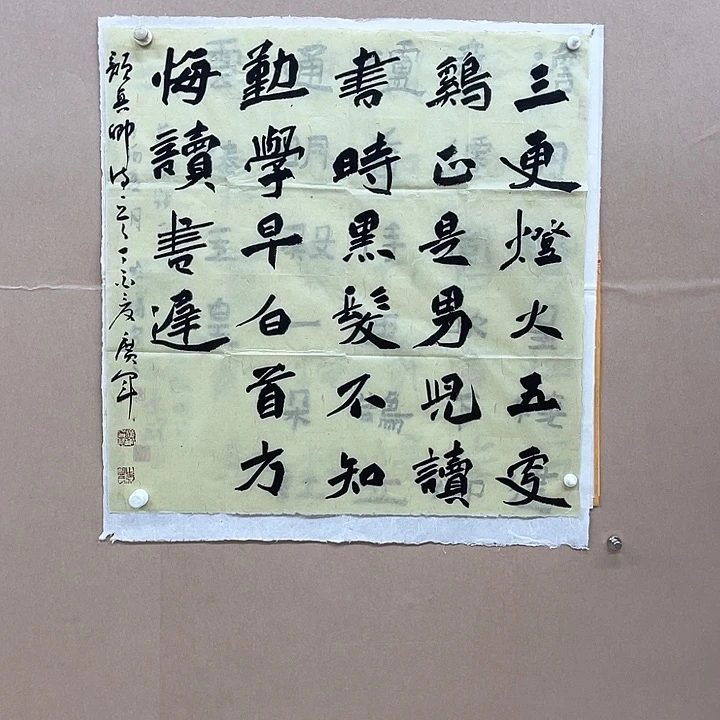 三更燈火五更
鷄正是男兒讀
書時黑髮不知
勤學早白首方
悔讀書遲
顏真卿詩 丁酉夏廣軍